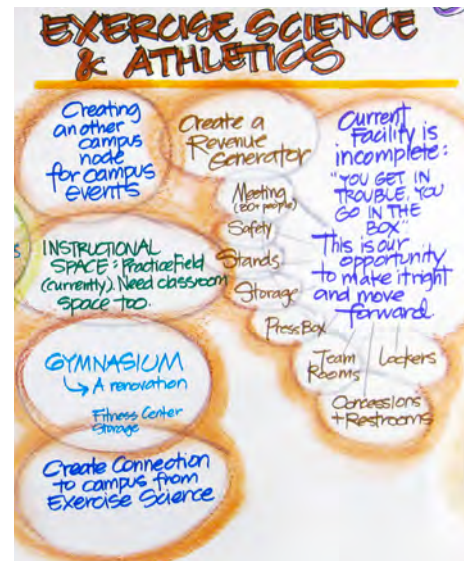 EXERCISE SCIENCE
& ATHLETICS
Creating
another
campus
node
for campus
events
INSTRUCTIONAL
SPACE: Practice Field
(currently). Need classroom
space too.
GYMNASIUM
↳ A renovation
Fitness Center
Storage
Create Connection
to campus from
Exercise Science
Create a
Revenue
Generator
Meeting
(80+ people)
Safety
Stands
Storage
Press Box
Team
Rooms
Lockers
Concessions
+ Restrooms
Current
Facility is
incomplete:
"YOU GET IN
TROUBLE, YOU
GO IN THE
BOX"
This is our
opportunity
to make it right
and move
forward.